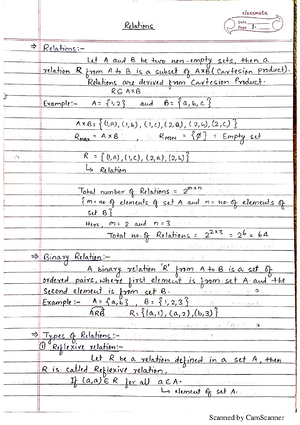 classmate
Date
Page 1.
Relations
⇒ Relations:-
Let A and B be two non-empty sets, then a
relation R from A to B is a subset of A×B (Cartesian product).
Relations are derived from Cartesian Product.
R ⊆ A×B
Example:- A = {1,2} and B = {a, b, c}
A×B = {(1,a), (1,b), (1,c), (2,a), (2,b), (2,c)}
Rmax = A×B , RMIN = {∅} = Empty set
R = {(1,a), (1,c), (2,a), (2,b)}
↳ Relation
Total number of Relations = 2^m×n
{m = no of elements of set A and n = no of elements of
set B}
Here, m = 2 and n = 3
Total no. of Relations = 2^2×3 = 2^6 = 64
⇒ Binary Relation:-
A binary relation 'R' from A to B is a set of
ordered pairs, where first element is from set A and the
Second element is from set B.
Example:- A = {a, b} , B = {1, 2, 3}
ARB R = {(a,1), (a,2), (b,3)}
⇒ Types of Relations:-
① Reflexive relation:-
Let R be a relation defined in a set A, then
R is called Reflexive relation,
If (a,a) ∈ R for all a ∈ A.
↳ element of set A.
Scanned by CamScanner